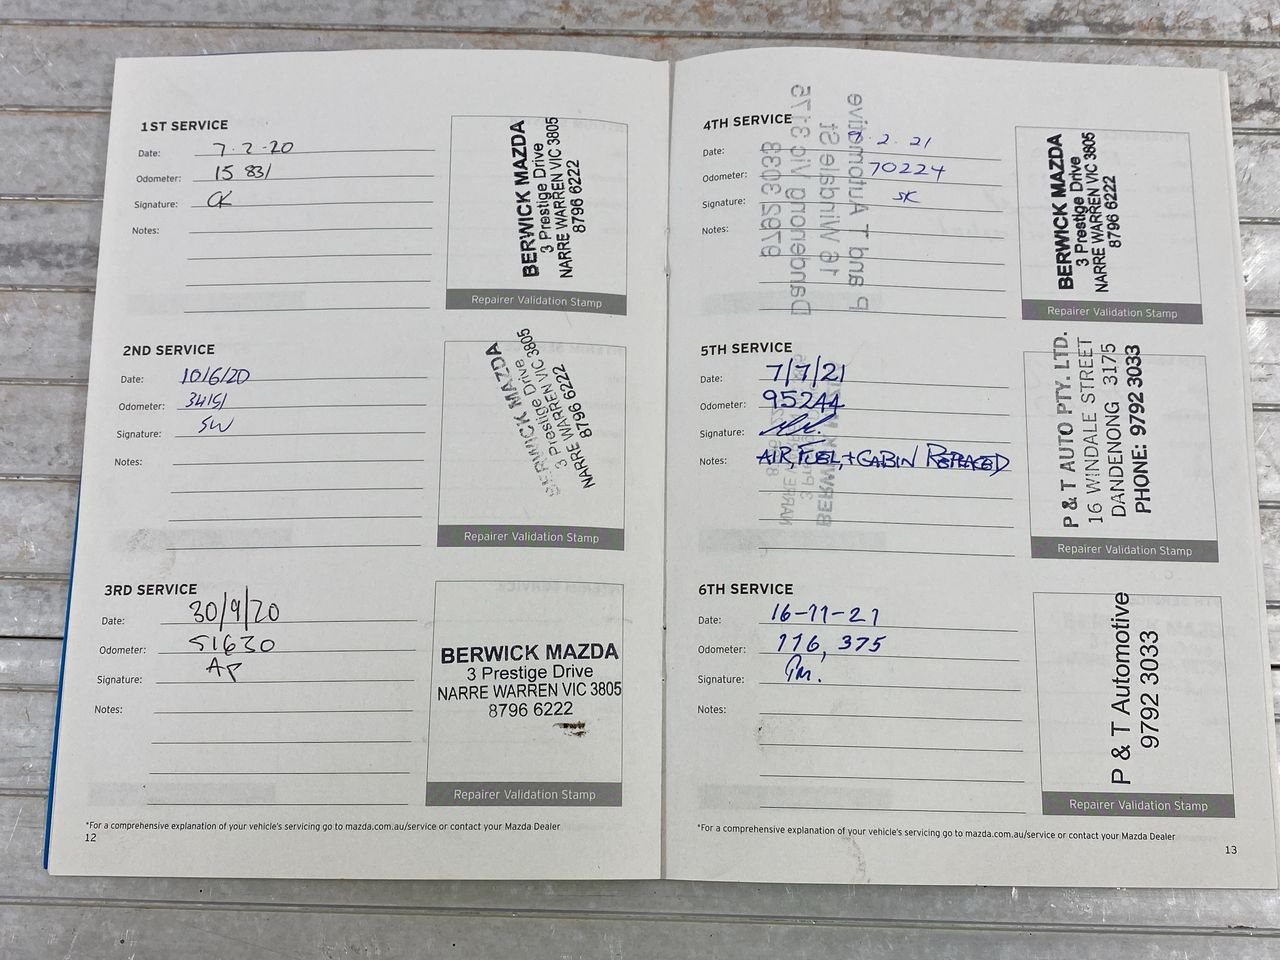 1ST SERVICE
Date: 7-2-20
Odometer: 15 831
Signature: CK
Notes:
BERWICK MAZDA
3 Prestige Drive
NARRE WARREN VIC 3805
8796 6222
Repairer Validation Stamp
2ND SERVICE
Date: 10/6/20
Odometer: 34151
Signature: SW
Notes:
BERWICK MAZDA
3 Prestige Drive
NARRE WARREN VIC 3805
8796 6222
Repairer Validation Stamp
3RD SERVICE
Date: 30/9/20
Odometer: 51630
Signature: AP
Notes:
BERWICK MAZDA
3 Prestige Drive
NARRE WARREN VIC 3805
8796 6222
Repairer Validation Stamp
*For a comprehensive explanation of your vehicle's servicing go to mazda.com.au/service or contact your Mazda Dealer
12
4TH SERVICE
Date: 8.2.21
Odometer: 70224
Signature: SK
Notes:
P and T Automotive
16 Windale St
Dandenong Vic 3175
97923033
BERWICK MAZDA
3 Prestige Drive
NARRE WARREN VIC 3805
8796 6222
Repairer Validation Stamp
5TH SERVICE
Date: 7/7/21
Odometer: 95244
Signature:
Notes: AIR, FUEL, + CABIN REPLACED
P & T AUTO PTY. LTD.
16 WINDALE STREET
DANDENONG 3175
PHONE: 9792 3033
Repairer Validation Stamp
6TH SERVICE
Date: 16-11-21
Odometer: 116, 375
Signature:
Notes:
P & T Automotive
9792 3033
Repairer Validation Stamp
*For a comprehensive explanation of your vehicle's servicing go to mazda.com.au/service or contact your Mazda Dealer
13